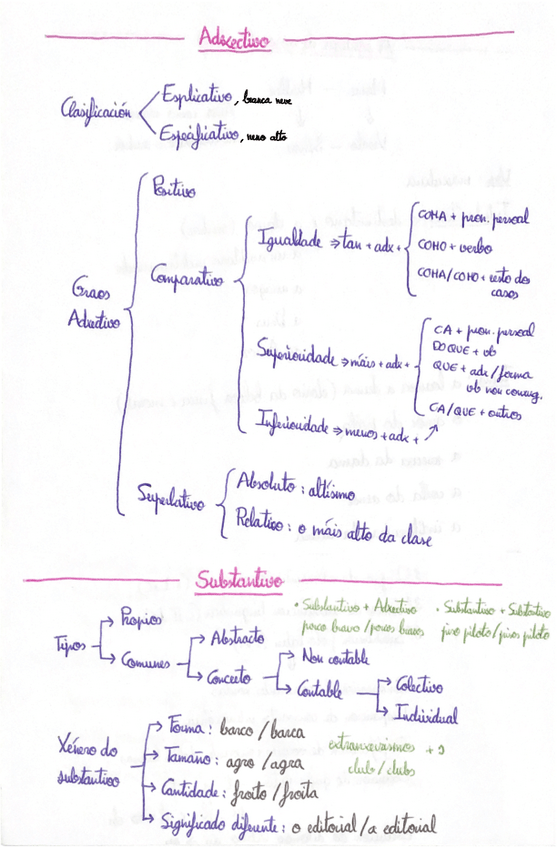 Adxectivo
Clasificación
Explicativo, branca neve
Especificativo, neno alto
Graos
Adxectivo
Positivo
Comparativo
Igualdade ⇒ tan + adx +
COMA + pron. persoal
COMO + verbo
COMA/COMO + resto dos
casos
Superioridade ⇒ máis + adx +
CA + pron. persoal
DO QUE + vb
QUE + adx/forma
vb non conxug.
CA/QUE + outros
Inferioridade ⇒ menos + adx +
Superlativo
Absoluto: altísimo
Relativo: o máis alto da clase
Substantivo
• Substantivo + Adxectivo
porco bravo/porcos bravos
• Substantivo + Substantivo
piso piloto/pisos piloto
Tipos
Propios
Comúns
Abstracto
Concreto
Non contable
Contable
Colectivo
Individual
Xénero do
substantivo
Forma: barco/barca
Tamaño: agro/agra
Cantidade: froito/froita
Significado diferente: o editorial/a editorial
estranxeirismos + s
club/clubs